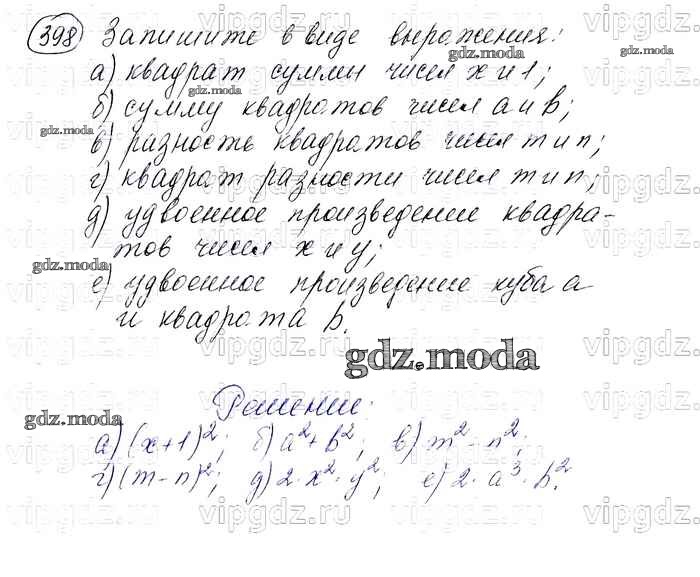 398 Запишите в виде выражения:
а) квадрат суммы чисел x и 1;
б) сумму квадратов чисел a и b;
в) разность квадратов чисел m и n;
г) квадрат разности чисел m и n;
д) удвоенное произведение квадра-
тов чисел x и y;
е) удвоенное произведение куба a
и квадрата b.
gdz.moda
Решение:
а) (x+1)²; б) a²+b²; в) m²-n²;
г) (m-n)²; д) 2·x²·y²; е) 2·a³·b².